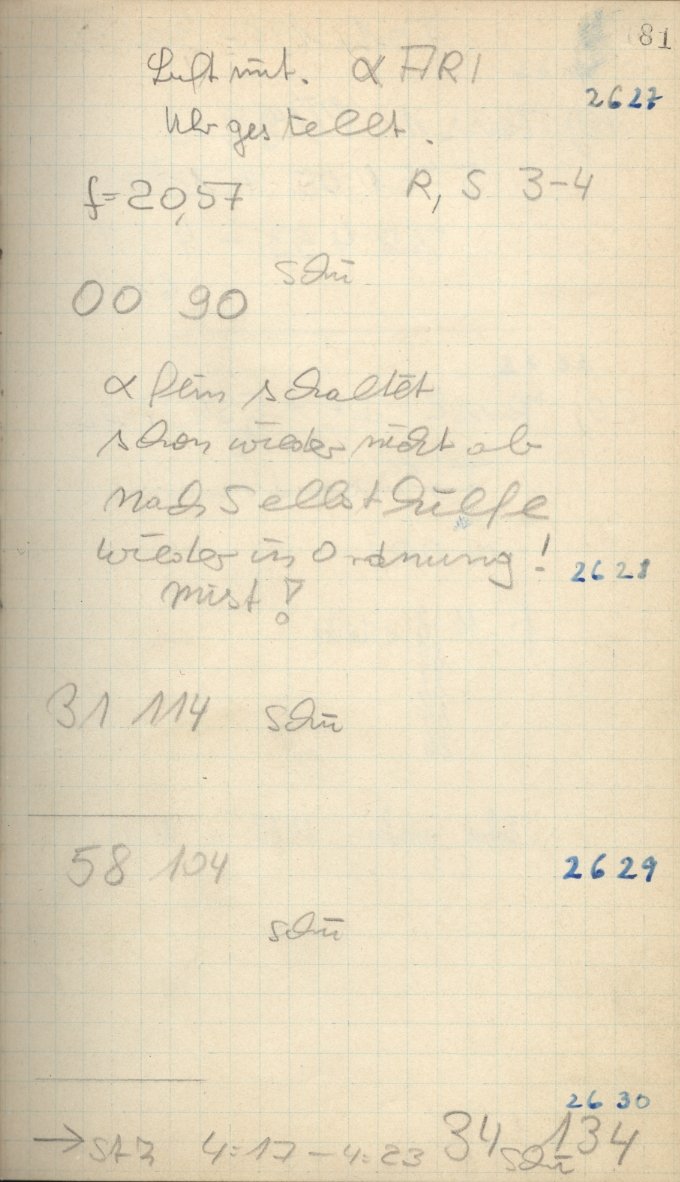 81
Luft mit. α ARI
2627
Uhr gestellt.
f=20,57 R, S 3-4
Schü
00 90
α fein schaltet
schon wieder nicht ab
nach Selbsthülfe
wieder in Ordnung!
2628
Mist!
31 114 Schü
58 104 2629
Schü
2630
→ StZ 4:17 - 4:23 34 134
Schü